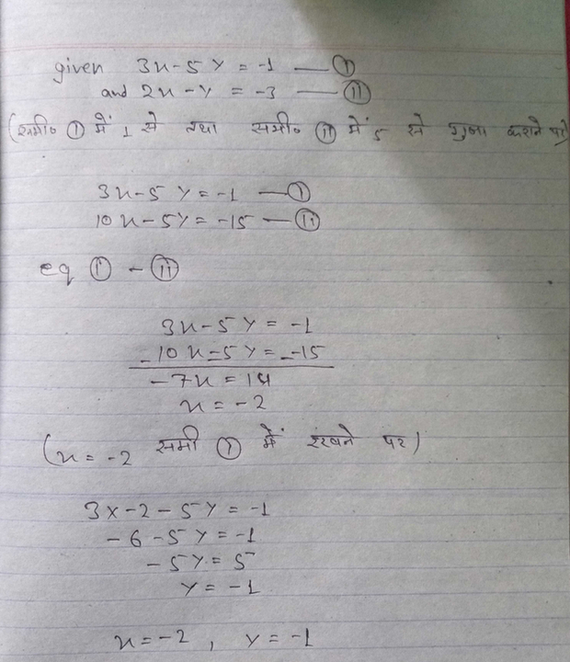 given 3x-5y = -1 — ①
and 2x-y = -3 — ⑪
(समी० ① में 1 से तथा समी० ⑪ में 5 से गुणा करने पर)
3x-5y = -1 — ①
10x-5y = -15 — ⑪
eq ① - ⑪
3x-5y = -1
-10x-5y = --15
-7x = 14
x = -2
(x = -2 समी ① में रखने पर)
3x-2-5y = -1
-6-5y = -1
-5y = 5
y = -1
x = -2, y = -1